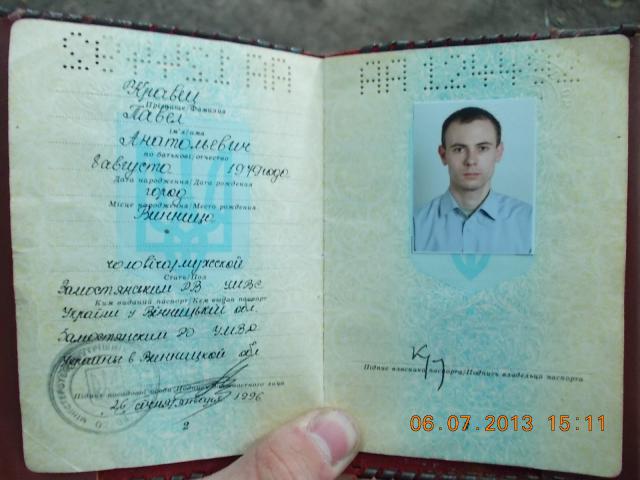 Кравец
Прізвище/Фамилия
Павел
ім'я/имя
Анатольевич
по батькові/отчество
8 августа 1979 года
Дата народження/Дата рождения
город
Місце народження/Место рождения
Винница
чоловіча/мужской
Стать/Пол
Замостянським РВ УМВС
Ким виданий паспорт/Кем выдан паспорт
України у Вінницькій обл.
Замостянским РО УМВД
Украины в Винницкой обл
Підпис посадової особи/Подпись должностного лица
26 січня/января 1996
2
АА
Підпис власника паспорта/Подпись владельца паспорта
06.07.2013 15:11